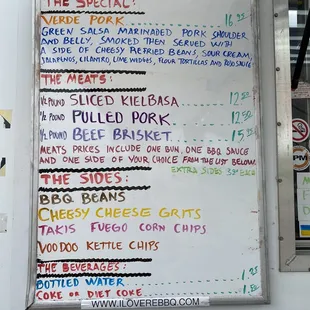 THE SPECIAL:
VERDE PORK 16.00
GREEN SALSA MARINADED PORK SHOULDER
AND BELLY, SMOKED THEN SERVED WITH
A SIDE OF CHEESY REFRIED BEANS, SOUR CREAM,
JALAPENOS, CILANTRO, LIME WEDGES, FLOUR TORTILLAS AND ROJO SAUCE
THE MEATS:
1/2 POUND SLICED KIELBASA 12.50
1/2 POUND PULLED PORK 12.50
1/2 POUND BEEF BRISKET 15.50
MEATS PRICES INCLUDE ONE BUN, ONE BBQ SAUCE
AND ONE SIDE OF YOUR CHOICE FROM THE LIST BELOW.
EXTRA SIDES 3.50 EACH
THE SIDES:
BBQ BEANS
CHEESY CHEESE GRITS
TAKIS FUEGO CORN CHIPS
VOODOO KETTLE CHIPS
THE BEVERAGES:
BOTTLED WATER 1.25
COKE OR DIET COKE 1.50
WWW.ILOVEREBBQ.COM